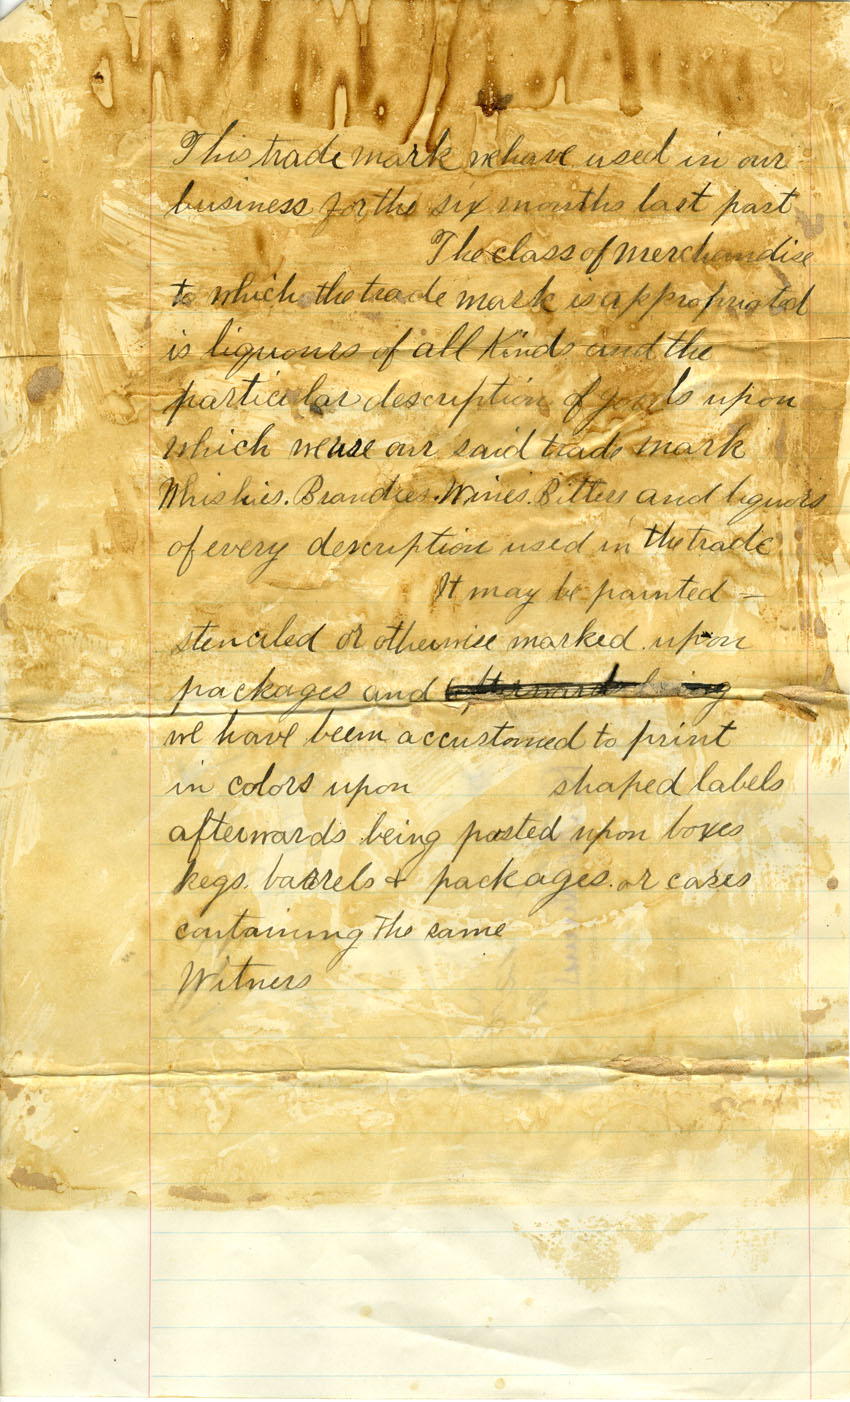 This trade mark we have used in our
business for the six months last past
The class of merchandise
to which the trade mark is appropriated
is liquours of all Kinds and the
particular description of goods upon
which we use our said trade mark
Whiskies. Brandies. Wines. Bitters and liquors
of every description used in the trade
It may be painted —
stenciled or otherwise marked upon
packages and afterwards being
we have been accustomed to print
in colors upon shaped labels
afterwards being pasted upon boxes
kegs. barrels & packages. or cases
containing the same
Witness